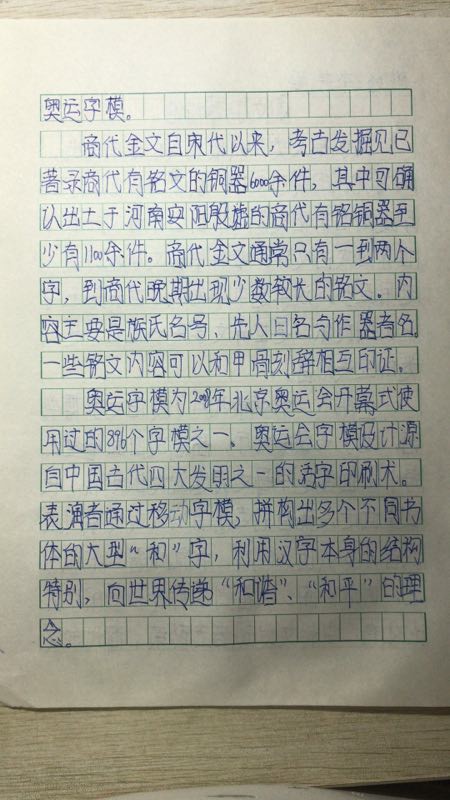 奥运字模。
商代金文自宋代以来，考古发掘见已
著录商代有铭文的铜器6000余件，其中可确
认出土于河南安阳殷墟的商代有铭铜器至
少有1100余件。商代金文通常只有一到两个
字，到商代晚期出现少数较长的铭文。内
容主要是族氏名号，先人日名与作器者名。
一些铭文内容可以和甲骨刻辞相互印证。
奥运字模为2008年北京奥运会开幕式使
用过的896个字模之一。奥运会字模设计源
自中国古代四大发明之一的活字印刷术。
表演者通过移动字模，拼构出多个不同书
体的大型“和”字，利用汉字本身的结构
特别，向世界传递“和谐”、“和平”的理
念。